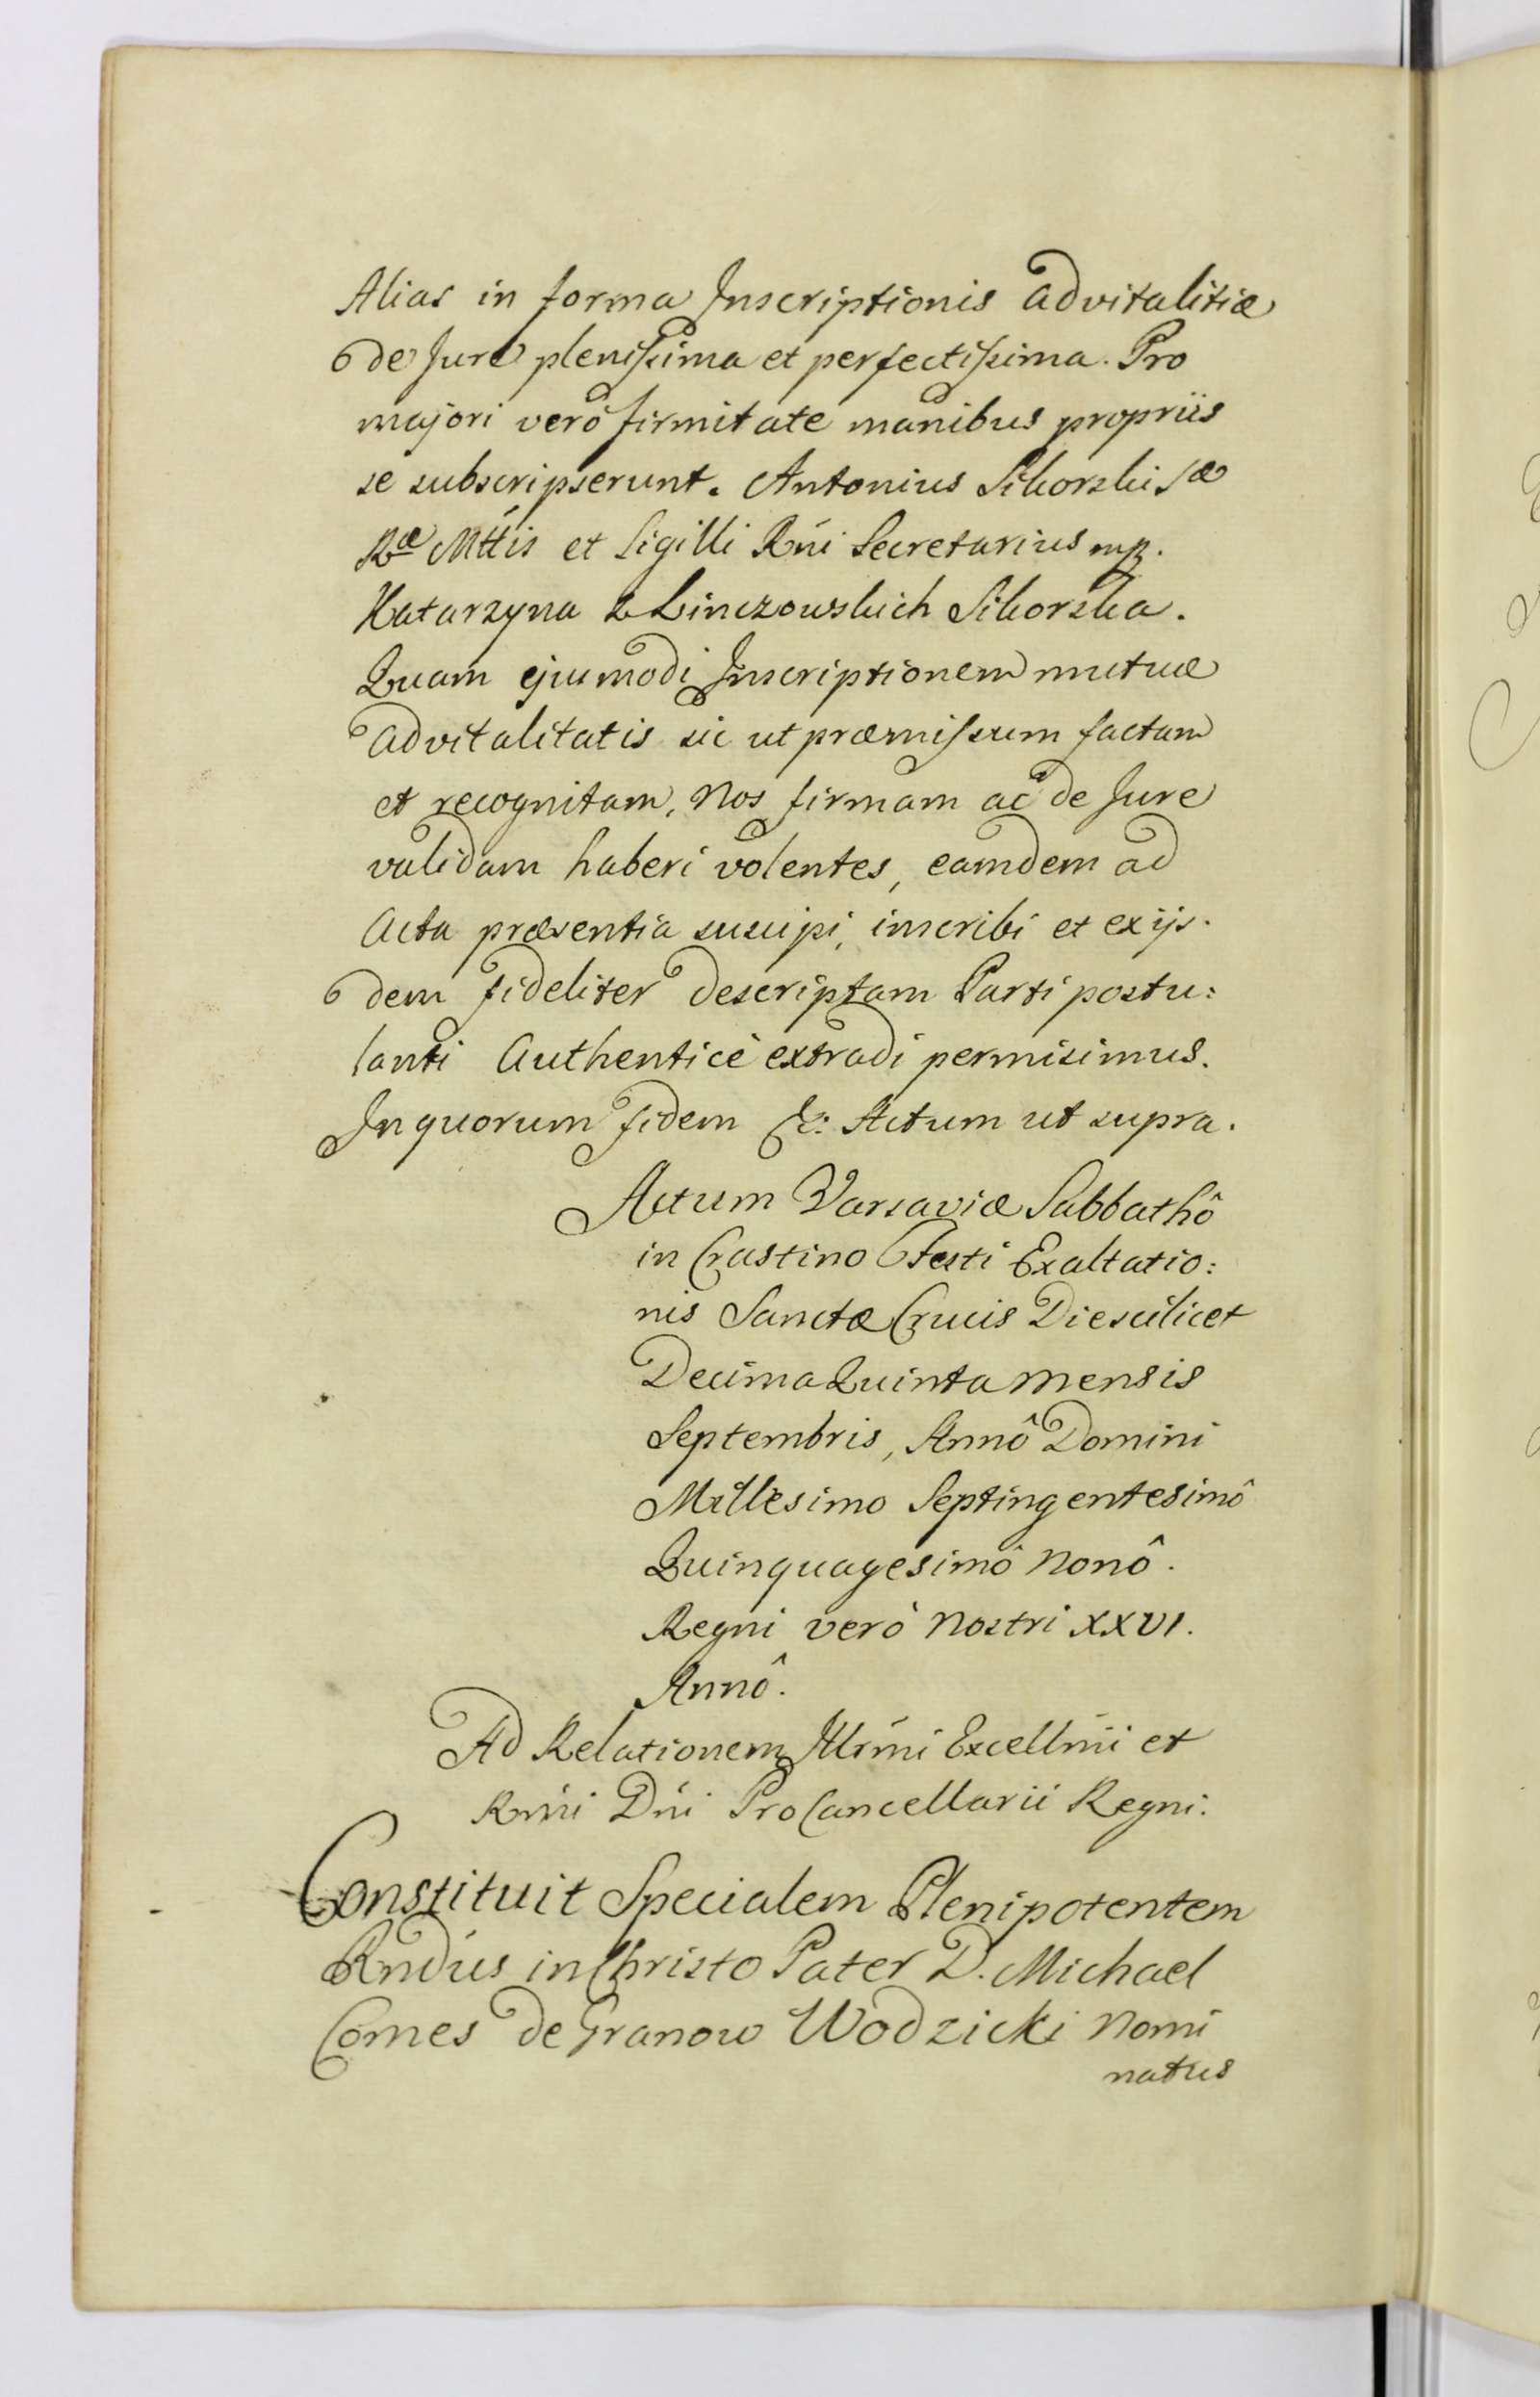 Alias in forma Inscriptionis advitalitiæ
de Jure plenissima et perfectissima. Pro
majori verò firmitate manibus propriis
se subscripserunt. Antonius Sikorski Sæ
Ræ Mttis et Sigilli Rńi Secretarius mp.
Katarzyna z Linczowskich Sikorska.
Quam ejusmodi Inscriptionem mutuæ
advitalitatis sic ut præmissum factam
et recognitam, Nos firmam ac de Jure
validam haberi volentes, eamdem ad
Acta præsentia suscipi, inscribi et ex ijs-
dem fideliter descriptam Parti postu:
lanti Authenticè extradi permisimus.
In quorum fidem &: Actum ut supra.
Actum Varsaviæ Sabbathô
in Crastino Festi Exaltatio:
nis Sanctæ Crucis Die scilicet
Decima Quinta mensis
Septembris, Annô Domini
Millesimo Septingentesimô
Quinquagesimô Nonô.
Regni verò Nostri XXVI.
Annô.
Ad Relationem Illrńi Excellńii et
Rmńi Dńi ProCancellarii Regni:
Constituit Specialem Plenipotentem
Rndus in Christo Pater D. Michael
Comes de Granow Wodzicki Nomi
natus